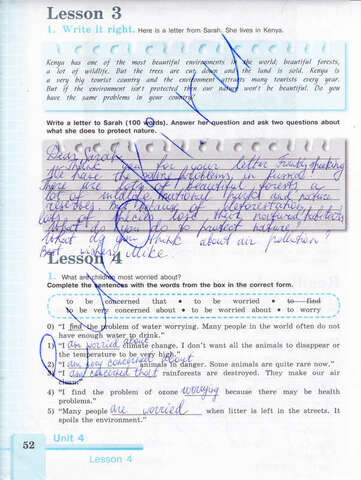 Lesson 3
1. Write it right. Here is a letter from Sarah. She lives in Kenya.
Kenya has one of the most beautiful environments in the world, beautiful forests,
a lot of wildlife. But the trees are cut down and the land is sold. Kenya is
a very big tourist country and the environment attracts many tourists every year.
But if the environment isn't protected then our nature won't be beautiful. Do you
have the same problems in your country?
Write a letter to Sarah (100 words). Answer her question and ask two questions about
what she does to protect nature.
Dear Sarah,
Thank you for your letter. Frankly speaking
we have the same problems in
There are lots of beautiful forests, a
lot of wildlife, national and nature
reserves. But because of deforestation,
lots of species lost their natural habitats.
What do you do to protect nature?
What do you think about air pollution?
Best wishes, Mike.
Lesson 4
1. What are children most worried about?
Complete the sentences with the words from the box in the correct form.
to be concerned that • to be worried • to find
to be very concerned about • to be worried about • to worry
0) "I find the problem of water worrying. Many people in the world often do not
have enough water to drink."
1) "I am worried about climate change. I don't want all the animals to disappear or
the temperature to be very high."
2) "I am very concerned about animals in danger. Some animals are quite rare now."
3) "I am concerned that rainforests are destroyed. They make our air
clean."
4) "I find the problem of ozone worrying because there may be health
problems."
5) "Many people are worried when litter is left in the streets. It
spoils the environment."
52
Unit 4
Lesson 4